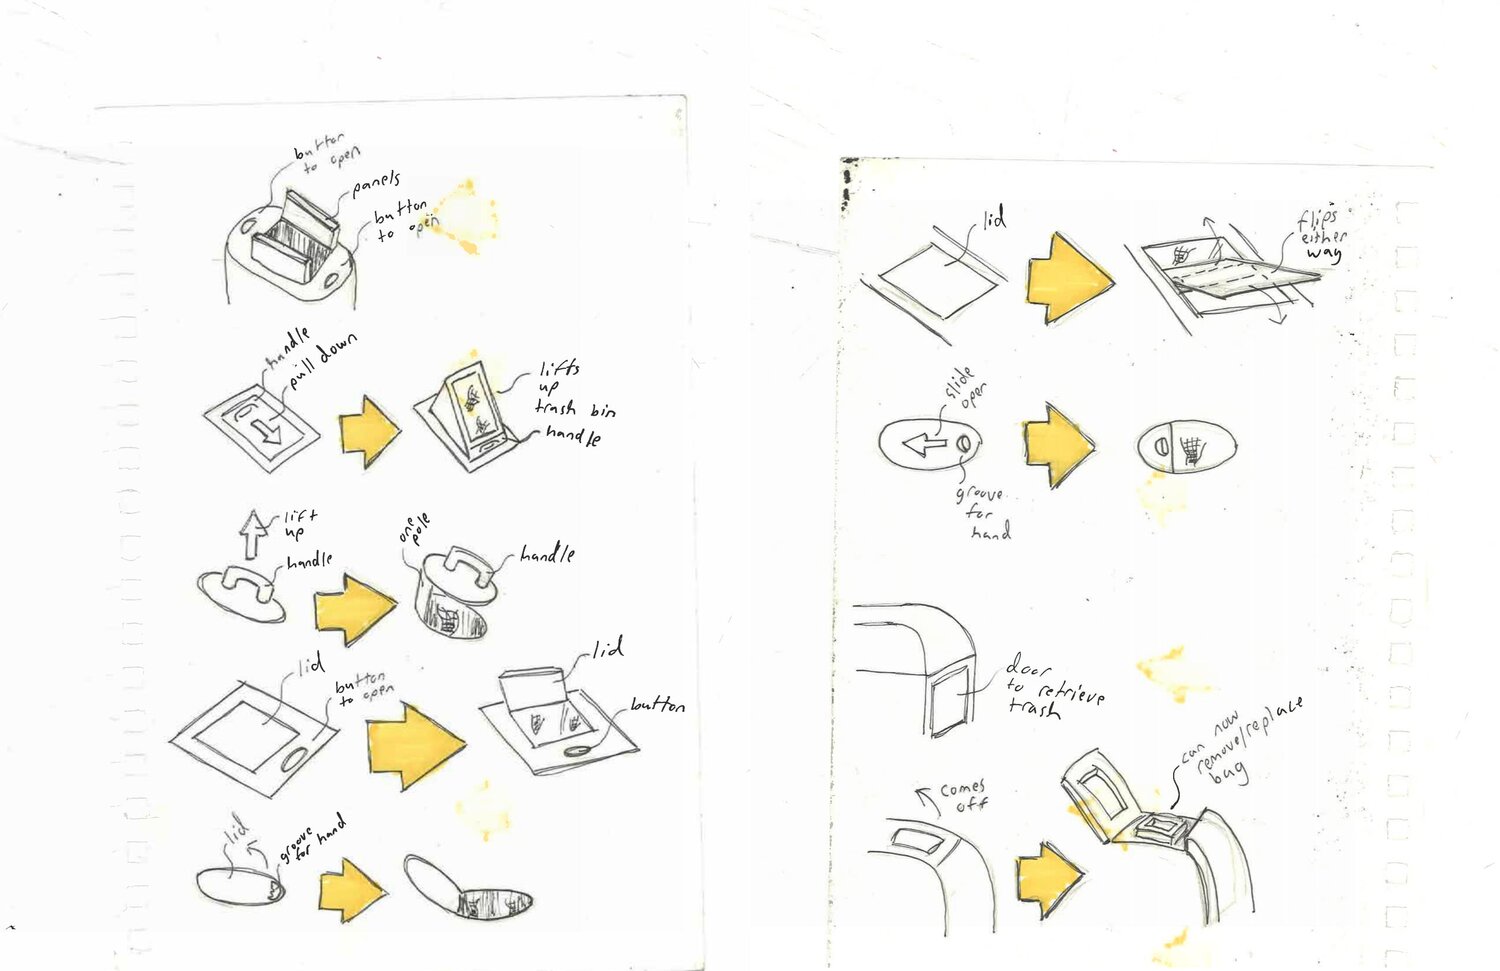 button
to open
panels
button
to open
handle
pull down
lifts
up
trash bin
handle
lift
up
handle
one
pole
handle
lid
button
to open
lid
button
lid
groove
for hand
lid
flips
either
way
slide
open
groove
for
hand
door
to retrieve
trash
comes
off
can now
remove/replace
bag